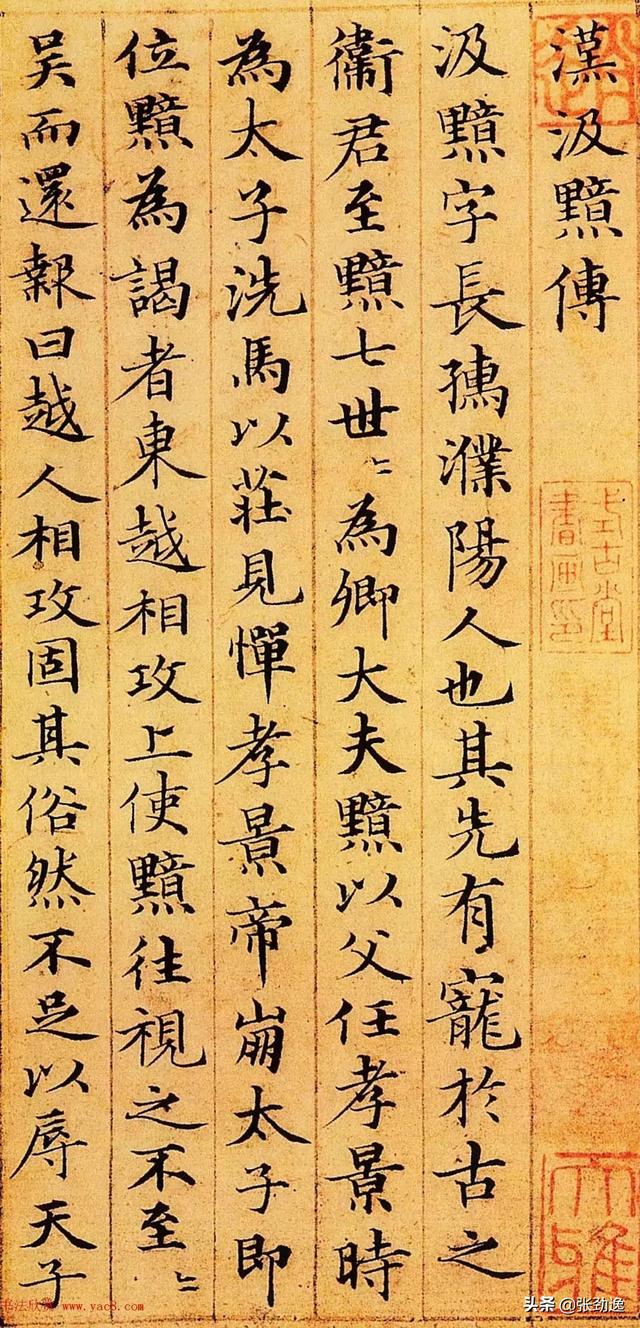 漢汲黯傳
汲黯字長孺濮陽人也其先有寵於古之
衛君至黯七世〻為卿大夫黯以父任孝景時
為太子洗馬以莊見憚孝景帝崩太子即
位黯為謁者東越相攻上使黯往視之不至〻
吳而還報曰越人相攻固其俗然不足以辱天子
式古堂書畫印
大雅
书法欣赏 www.yac8.com
头条 @张劲逸